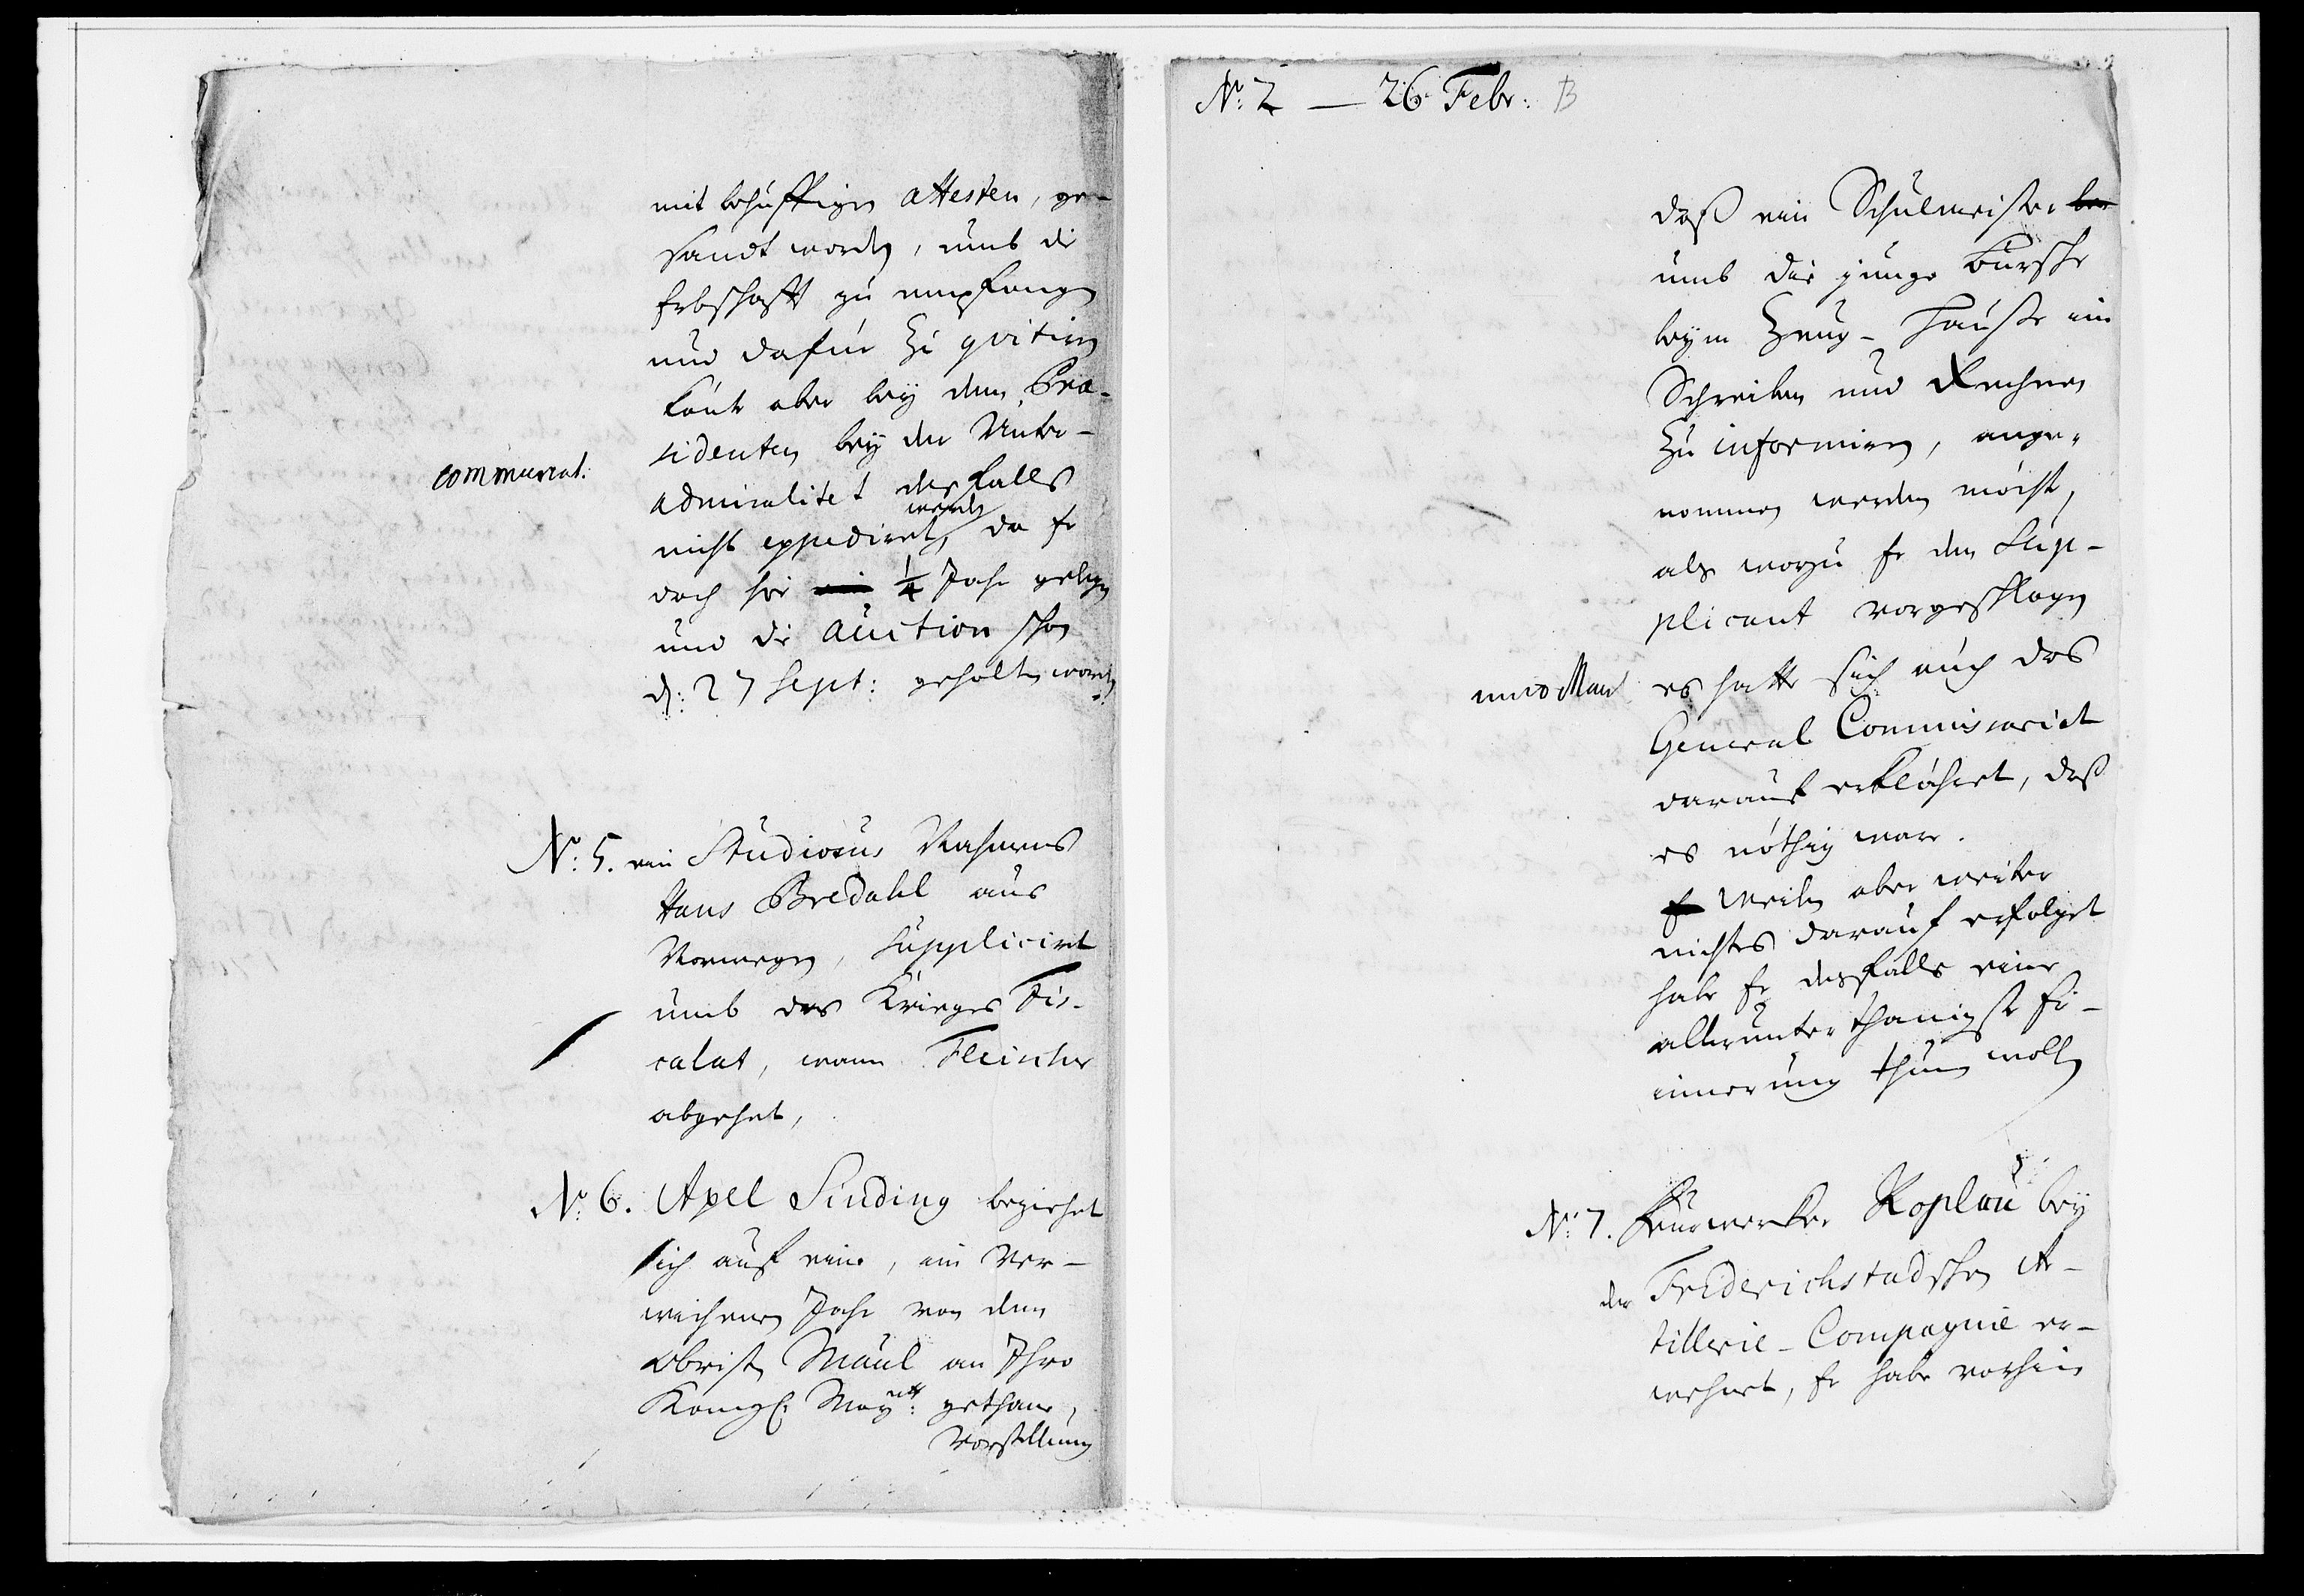 mit behuffigen attesten, ge-
sandt worden, umb die
Erbschafft zu empfangen
und dafür zu qvitiren
könte aber bey dem Præ-
sidenten bey der Unter-
communicat.
admiralitet desfalls
werden
nicht expediret, da Er
doch hie ein 1/4 Jahr gelegen
und die auction schon
d: 27 Sept: gehalten worden
No: 5. ein Studiosus Nahmens
Hans Bredahl aus
Norwegen, suppliciret
umb das Krieges Fis-
calat, wann Fleischer
abgehet,
No: 6. Axel Sinding beziehet
sich auf eine, im Ver-
wichenen Jahr von dem
Obristen Maul an Ihro
Königl: Mayett: gethane,
Vorstellung
No: 2 — 26 Febr: B
daß ein Schulmeister ber
umb die junge Bursche
beym Zeug-Hause im
Schreiben und Rechnen
zu informiren, ange-
nommen werden möchte,
als wozu Er den Sup-
plicant vorgeschlagen
es hatte sich auch das
General Commissariat
darauf erklähret, daß
es nöthig ware.
E Weilen aber weiter
nichts darauf erfolget
habe Er desfalls eine
allerunterthänigste Er-
innerung thun wollen
No: 7. Feurwercker Roplau bey
der Friderichstadschen Ar-
tillerie-Compagnie er-
wehnet, Er habe vorhin